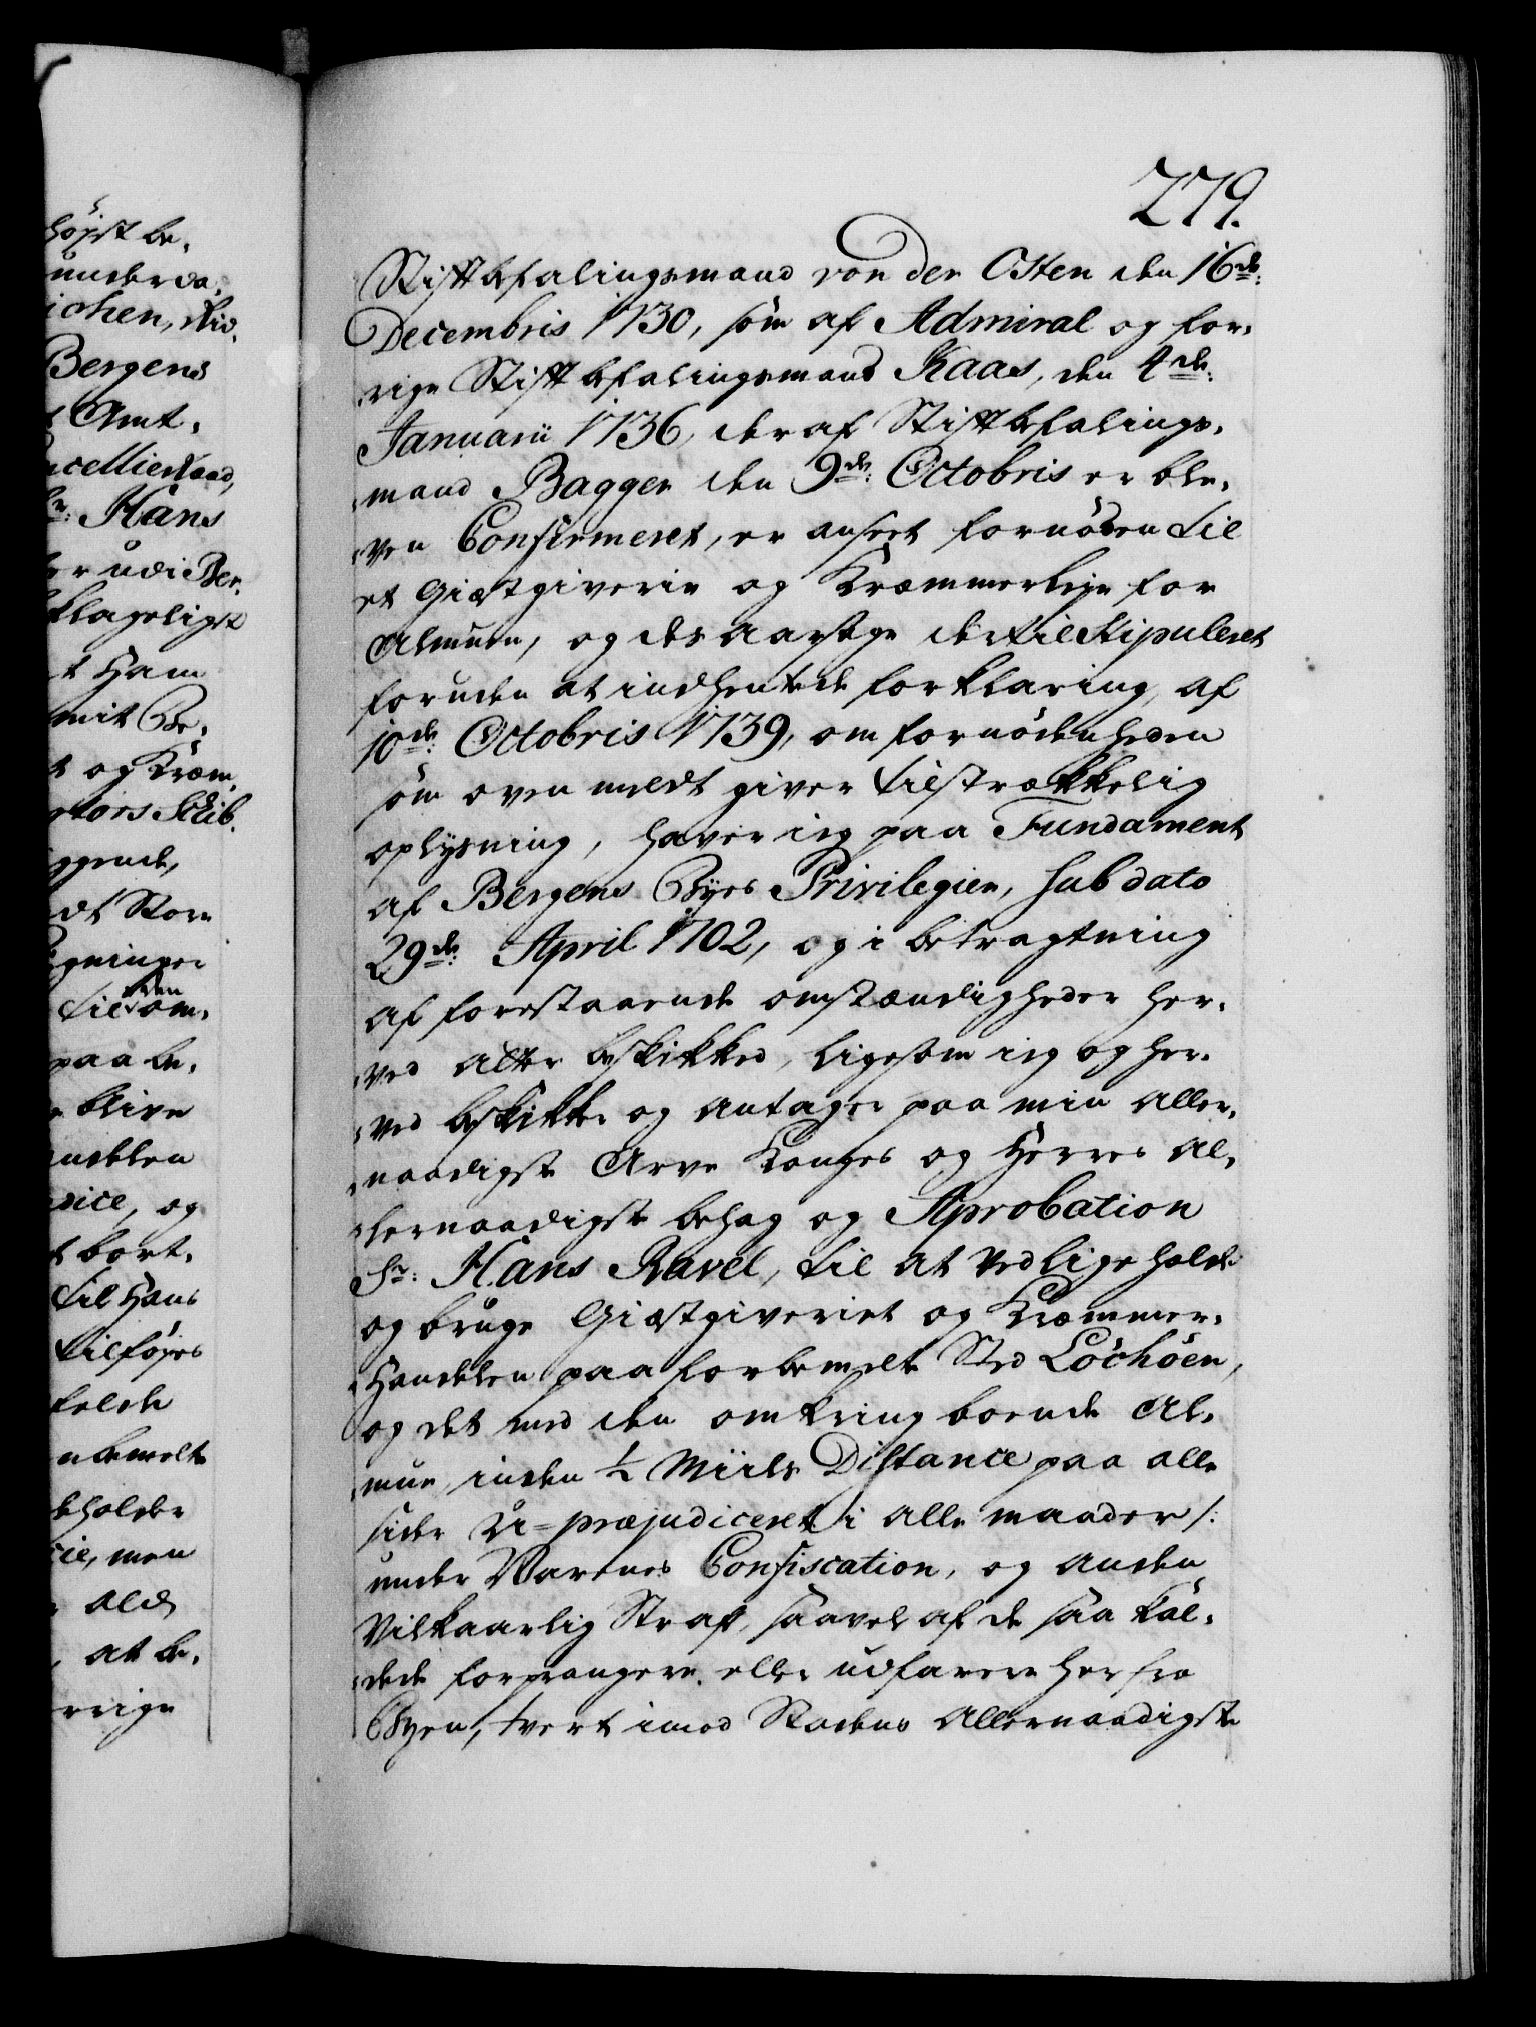 279.
Stiftbefalingsmand von der Osten den 16de:
Decembris 1730, som af Admiral og for-
rige Stiftbefalingsmand Kaas, den 4de:
Januarii 1736, der af Stiftbefalings-
mand Bagger den 9de: Octobris er ble-
ven Confirmeret, er anseet fornöden til
et Giæstgiverie og Kræmmerleje for
Almuen, og des aarsage dertil Stipuleret
foruden at indhentede forklaring, af
10de: Octobris 1739, om fornödenheden
som oven meldt giver tilstrækkelig
oplysning, haver ieg paa Fundament
af Bergens Byes Privilegier, sub dato
29de: April 1702, og i betragtning
af forestaaende omstændigheder her-
ved beskikked, ligesom ieg og her-
ved beskikker og antager paa min aller-
naadigste Arve Konges og Herres al-
lernaadigste behag og Aprobation
Sr: Hans Ravel, til at vedlige holde
og bruge Giæstgiveriet og Kræmmer-
Handelen paa forbemelte Sted Löchöen,
og det med den omkring boende Al-
mue, inden 1/2 Miils Distance paa alle
sider U=præjudiceret i alle maader /:
under Varenes Confiscation, og anden
Vilkaarlig Straf, saavel af de saa kal-
dede forprangere, eller udfarere her fra
Byen, tvert imod Stadens Allernaadigste